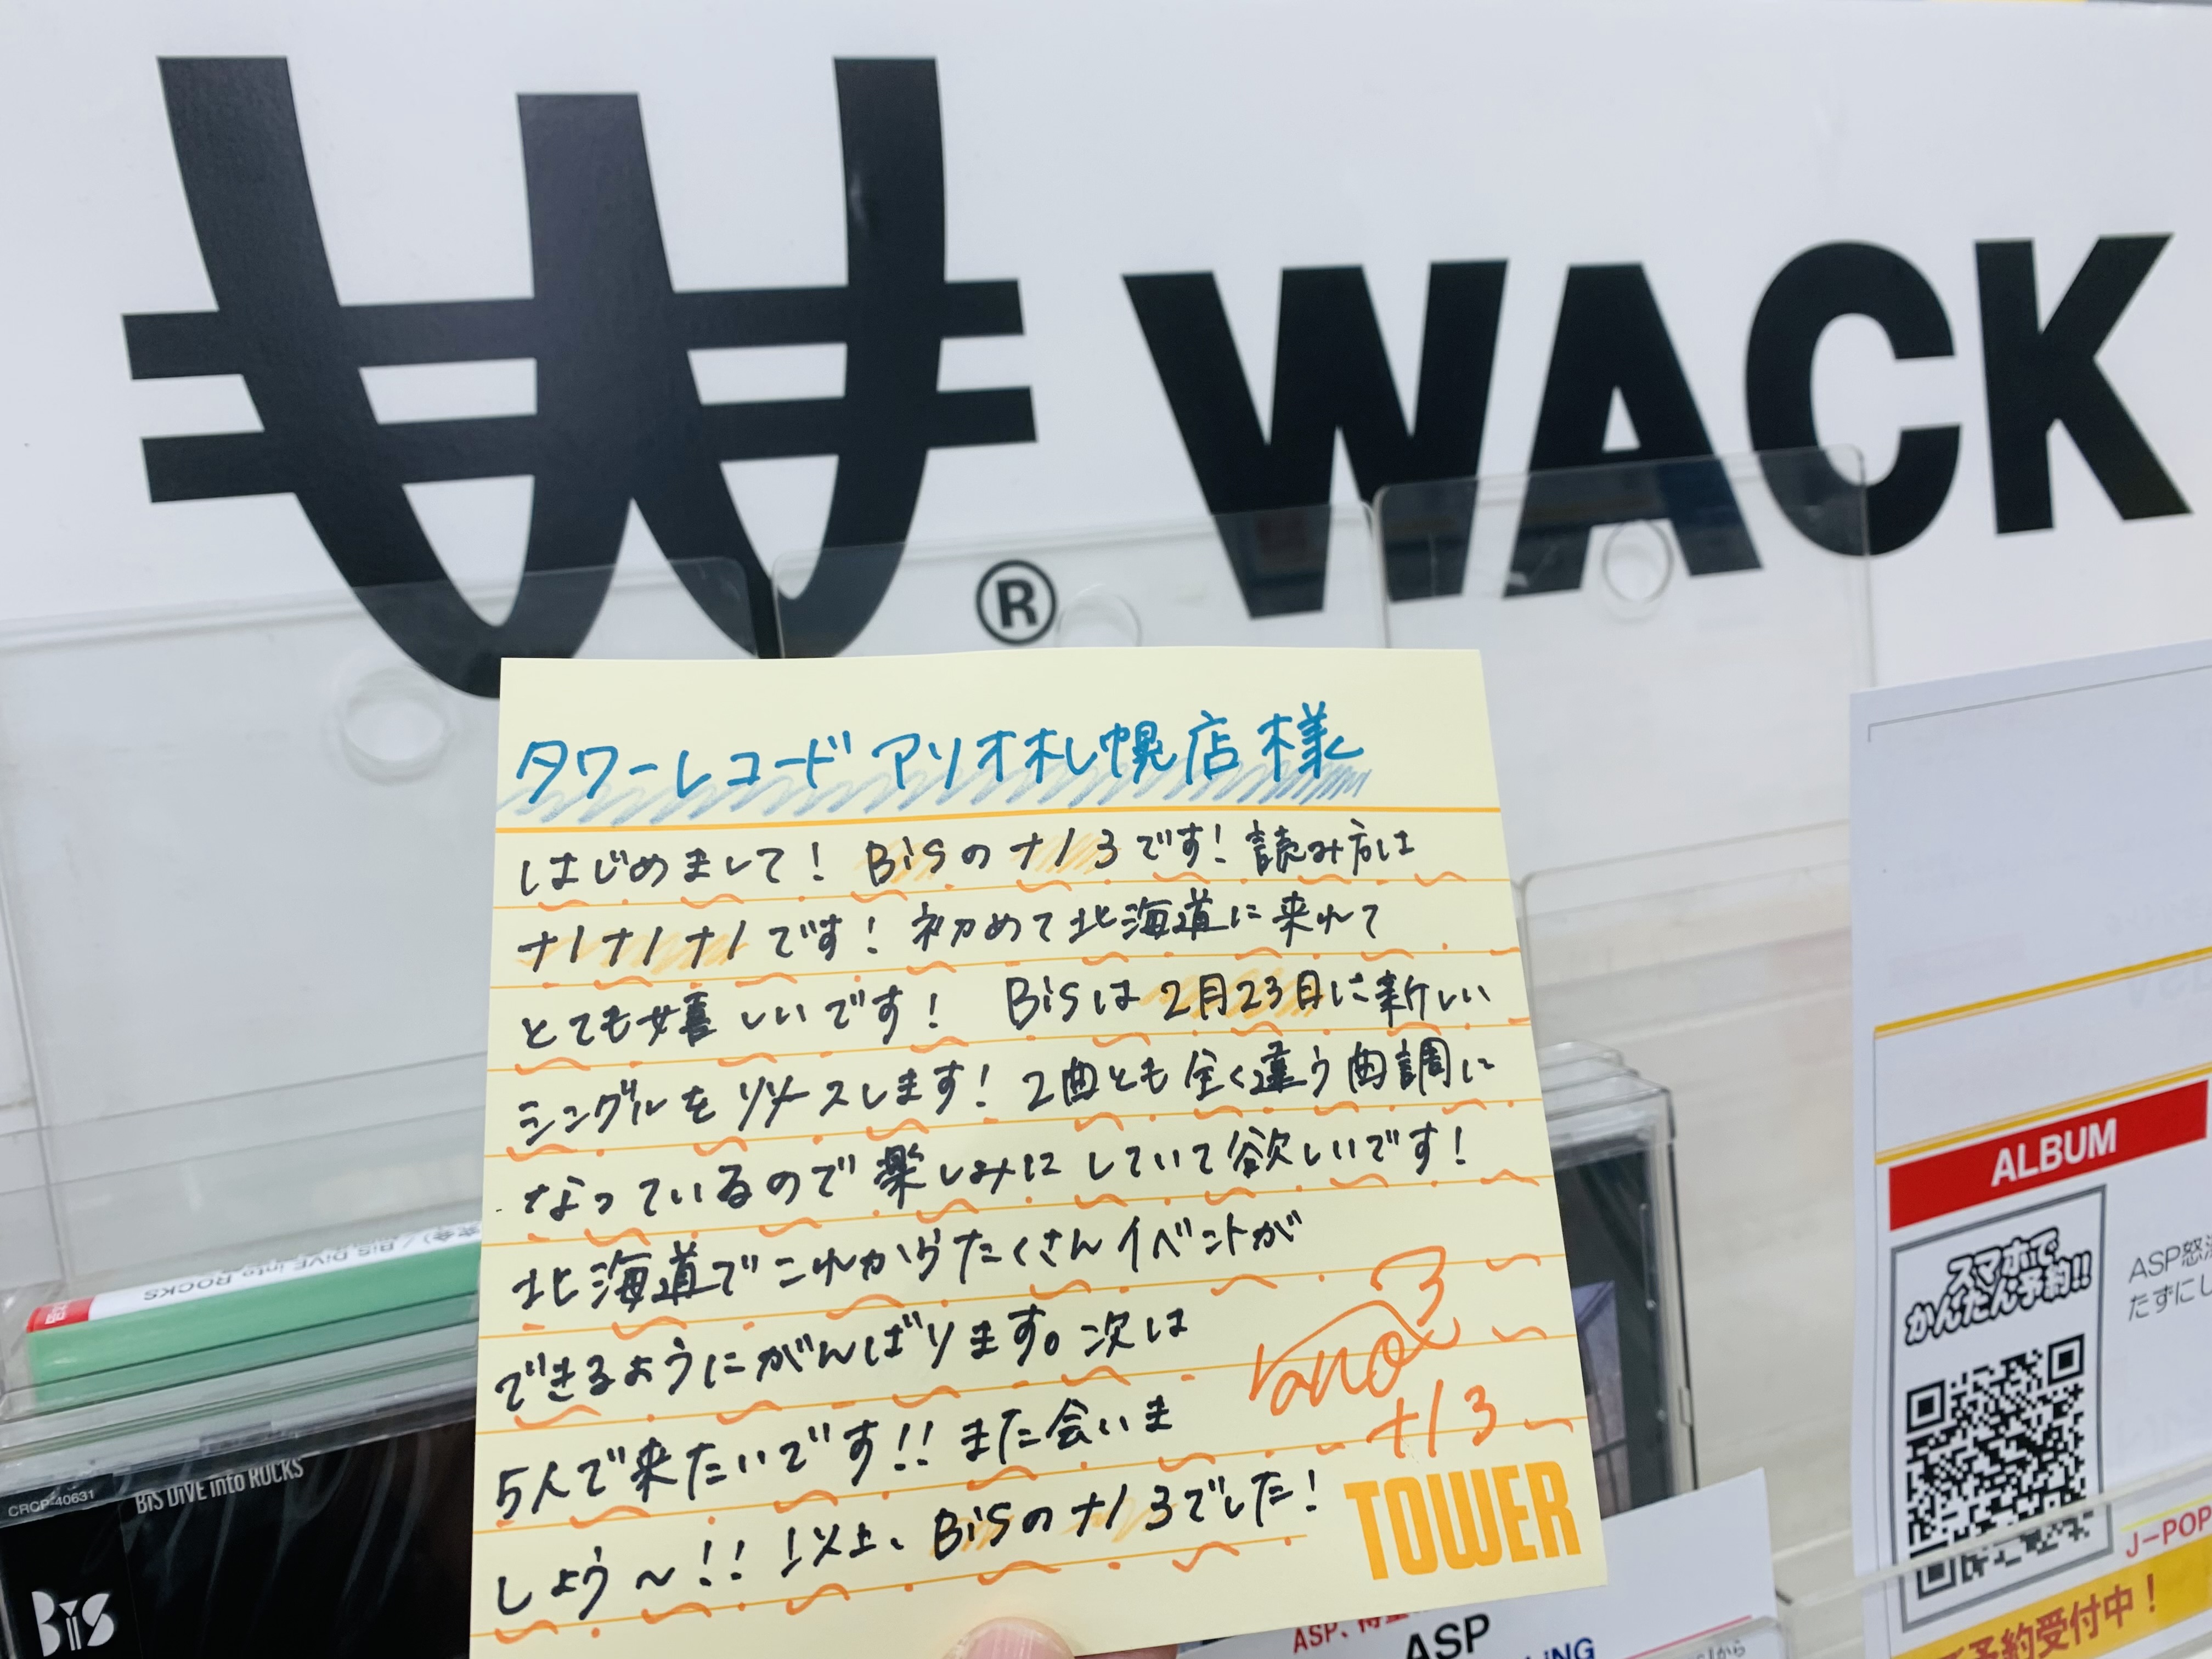 WACK
®
タワーレコードアリオ札幌店様
はじめまして！ BiSのナノ3です！読み方は
ナノナノナノです！初めて北海道に来れて
とても嬉しいです！ BiSは2月23日に新しい
シングルをリリースします！2曲とも全く違う曲調に
なっているので楽しみにしていて欲しいです！
北海道でこれからたくさんイベントが
できるようにがんばります。次は
5人で来たいです!!また会いま
しょう〜!! 以上、BiSのナノ3でした！
nano3
ナノ3
TOWER
BiS DiVE into ROCKS
CRCP-40631
BiS DiVE into ROCKS
BiS
ALBUM
スマホで
かんたん予約!!
ASP怒
たずにし
J-POP
予約受付中！
ASP、
ASP
LiNG
から